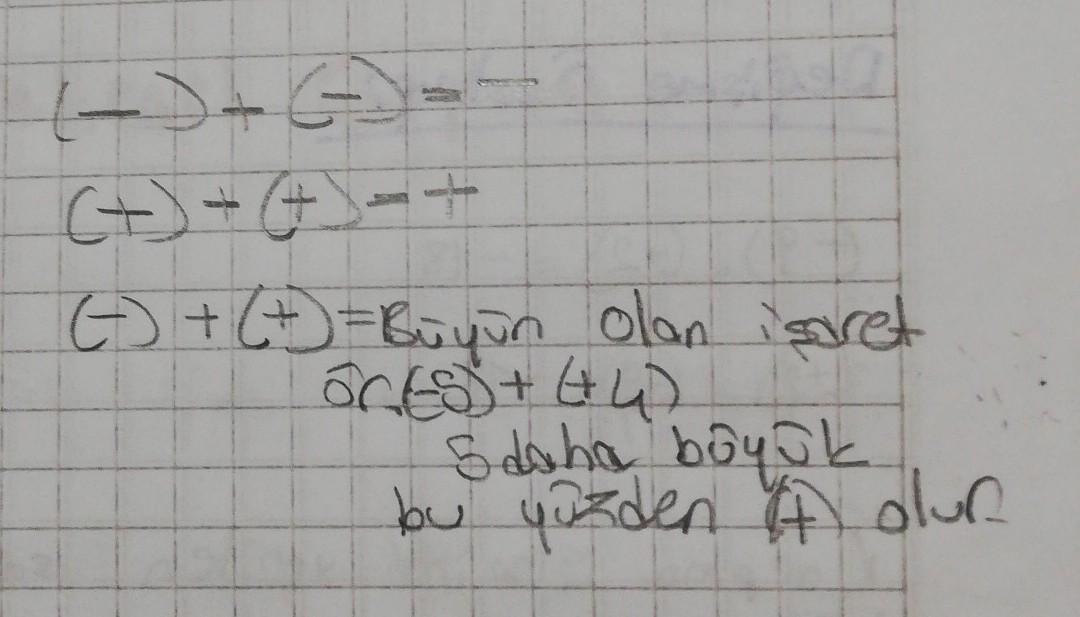 (-) + (-) = -
(+) + (+) = +
(-) + (+) = Büyün olan işaret
ör(-5) + (+4)
5 daha büyük
bu yüzden (+) olur